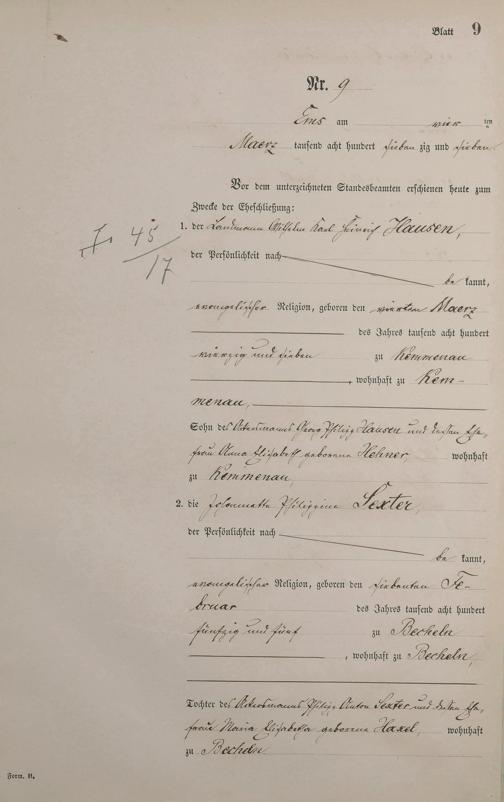 Blatt 9
Nr. 9
Ems am vier ten
Maerz tausend acht hundert sieben zig und sieben
Vor dem unterzeichneten Standesbeamten erschienen heute zum
Zwecke der Eheschließung:
1. der Landmann Wilhelm Karl Heinrich Hausen,
45
17
der Persönlichkeit nach
be kannt,
evangelischer Religion, geboren den vierten Maerz
des Jahres tausend acht hundert
vierzig und sieben zu Kemmenau
, wohnhaft zu Kem-
menau,
Sohn des Ackersmanns Georg Philipp Hausen und dessen Ehe-
frau Anna Elisabeth geborene Hehner, wohnhaft
zu Kemmenau,
2. die Johannette Philippine Sexter,
der Persönlichkeit nach
be kannt,
evangelischer Religion, geboren den siebenten Fe-
bruar des Jahres tausend acht hundert
fünfzig und fünf zu Becheln
, wohnhaft zu Becheln,
Tochter des Ackersmanns Philipp Anton Sexter und dessen Ehe-
frau Maria Elisabetha geborene Haxel, wohnhaft
zu Becheln
Form. B.